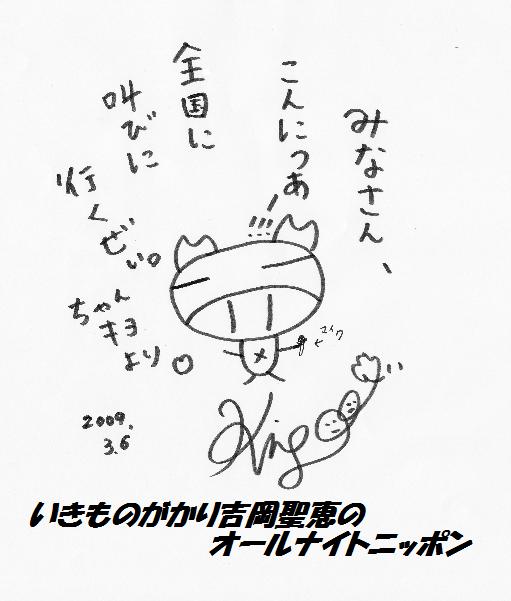 みなさん、
こんにつあ!!!
全国に
叫びに
行くぜい。
ちゃん
キヨ
より
マイク
2009.
3.6
いきものがかり吉岡聖恵の
オールナイトニッポン